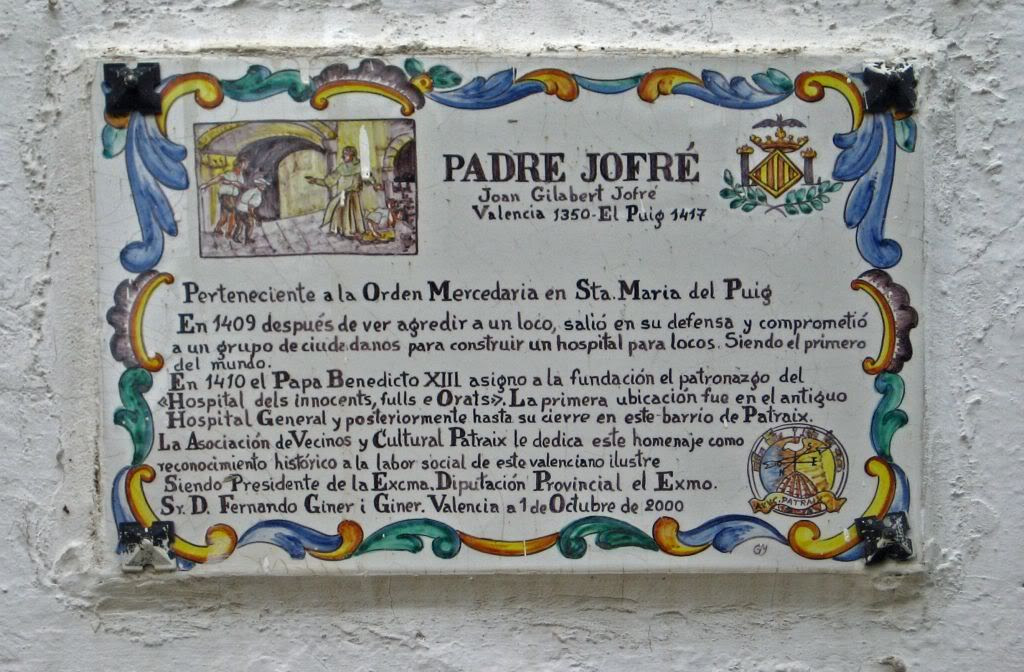 PADRE JOFRÉ
Joan Gilabert Jofré
Valencia 1350-El Puig 1417
Perteneciente a la Orden Mercedaria en Sta. Maria del Puig
En 1409 después de ver agredir a un loco, salió en su defensa y comprometió
a un grupo de ciudadanos para construir un hospital para locos. Siendo el primero
del mundo.
En 1410 el Papa Benedicto XIII asigno a la fundación el patronazgo del
«Hospital dels innocents, fulls e Orats». La primera ubicación fue en el antiguo
Hospital General y posteriormente hasta su cierre en este barrio de Patraix.
La Asociación de Vecinos y Cultural Patraix le dedica este homenaje como
reconocimiento histórico a la labor social de este valenciano ilustre
Siendo Presidente de la Excma. Diputación Provincial el Exmo.
Sr. D. Fernando Giner i Giner. Valencia a 1 de Octubre de 2000
PATRAIX
GY